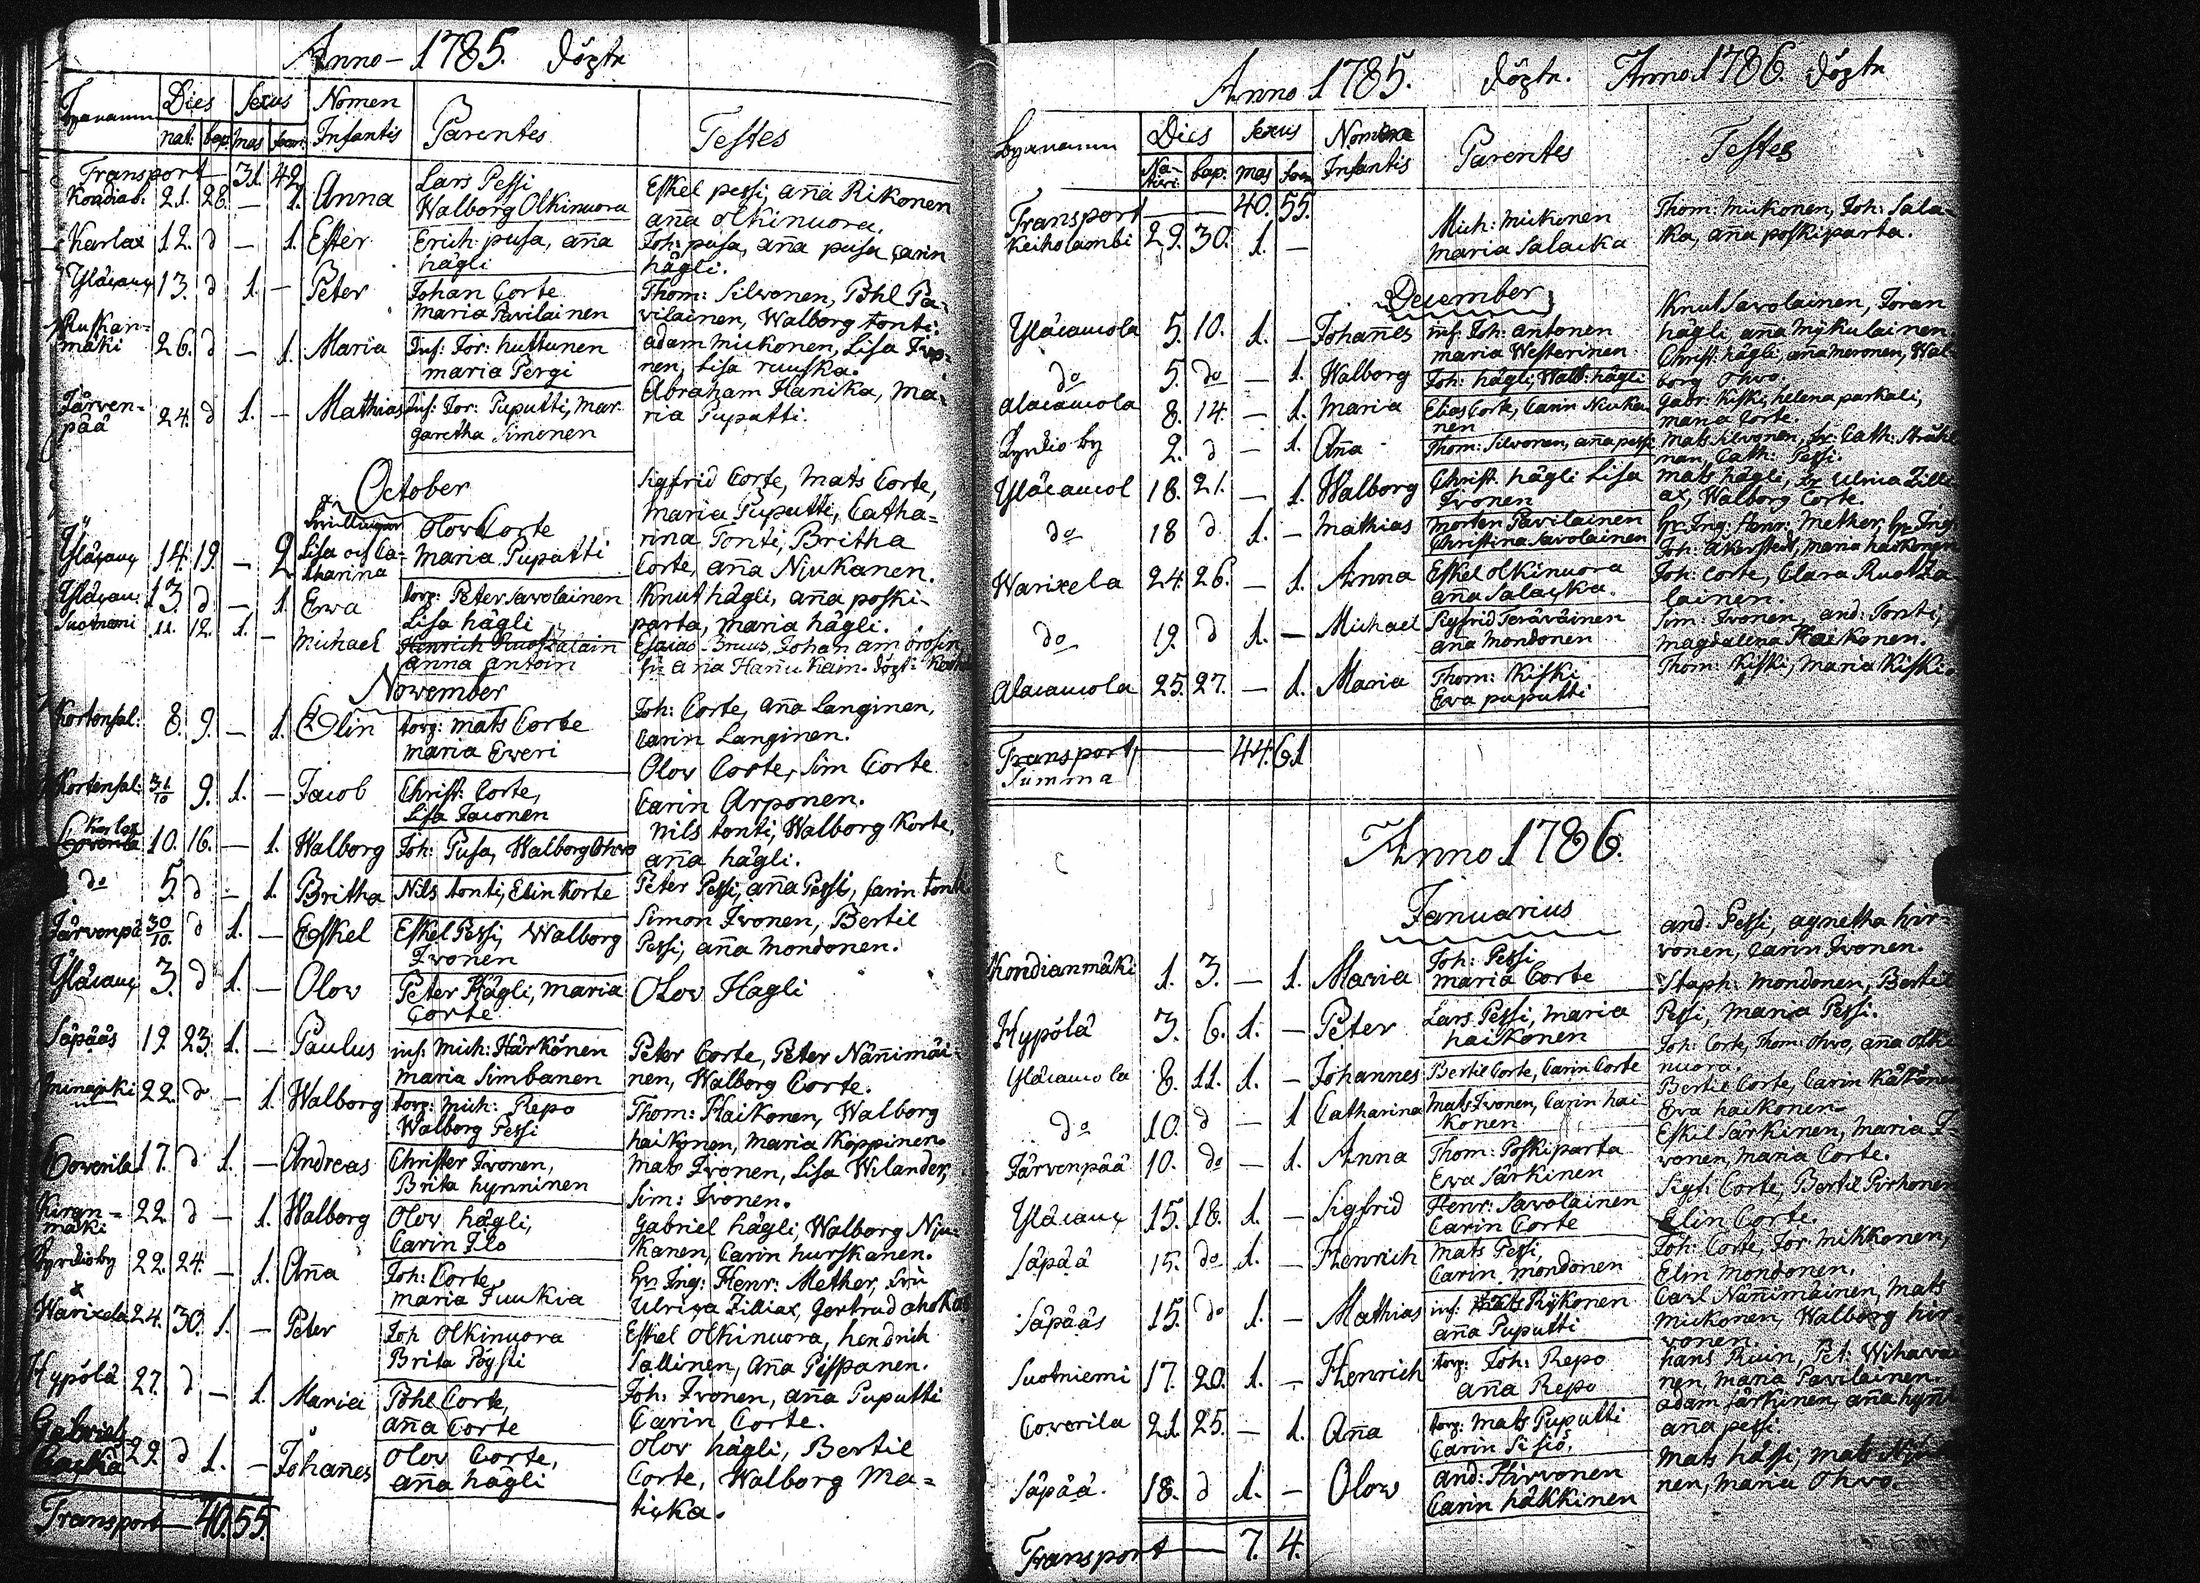 Anno - 1785. döptr
Byanamn Dies Sexus Nomen Infantis Parentes Testes
nat: bap. mas foem.
Transport — 31. 42.
Kondiab. 21. 28. — 1. Anna Lars Pessi Walborg Olkinuora Eskel pessi, aña Rikonen aña olkinuora.
Karlax 12. d — 1. Ester Erich pusa, aña hägli Joh: pusa, aña pusa Carin hägli.
Yläcauç 13. d 1. — Peter Johan Corte Maria Pavilainen Thom: Silvonen, Påhl Pavilainen, Walborg tonti.
Ruskan=mäki 26. d — 1. Maria Inh: Jör: huttunen maria Pergi adam mickonen, Lisa nen, Lisa ruuska.
Järven=pää 24. d 1. — Mathias Inh: Jör: Puputti, Margaretha Simonen Abraham Hanika, Maria Puputti.
October
Yläcauç 14. 19. — 2 Tvillingar Lisa och Catharina Olov Corte Maria Puputti Sigfrid Corte, Mats Corte, Maria Puputti, Catha=rina Tonti, Britha Corte, aña Njukanen.
Yläcau: 13. d. — 1. Ewa torp: Peter Savolainen Lisa hägli Knut hägli, aña poski=parta, maria hägli.
Suotniemi 11. 12. 1. — Michael Hinrich Ruotzalain anna antoin Esaias Bruus, Johan
November
Kortensal: 8. 9. — 1. Elin torp: mats Corte maria Eweri Joh: Corte, aña Langinen, Carin Langinen.
Kortensal: 31/10 9. 1. — Jacob Christ: Corte, Lisa Iaconen Olov Corte, Sim Corte Carin Arponen.
Karlax Coverila 10. 16. — 1. Walborg Joh: Pusa, Walborg Ohvo Nils tonti, Walborg Korte, aña hägli.
do 5. d — 1. Britha Nils tonti, Elin Korte Peter Pessi, aña Pessi, Carin tonti
Järvenpä 30/10. d 1. — Eskel Eskel Pessi, Walborg Ivonen Simon Ivonen, Bertil Pessi, aña mondonen.
Yläcauç 3. d 1. — Olov Peter Hägli, maria Corte Olov Hagli
Säpääs 19. 23. 1. — Paulus inh: Mich: Härkönen maria Simbanen Peter Corte, Peter Näñimäi=nen, Walborg Corte.
22. do — 1. Walborg torp: mich: Repo Walborg Pessi Thom: Haikonen, Walborg haikonen, maria Koppinen.
Coverila 17. d 1. — Andreas Christer Ivonen, Brita hynninen Mats Ivonen, Lisa Wilander, Sim: Ivonen.
Kirgn=mäki 22. d — 1. Walborg Olov hägli, Carin Ilo Gabriel hägli, Walborg Nju=kanen, Carin hurskanen.
Syrdioby 22. 24. — 1. Aña Joh: Corte, maria Juukia Hr Ing: Henr: Mether, fru Ulrica Zilliax, Gertrud ahokas
Warixela 24. 30. 1. — Peter Joh Olkinuora Brita Pöysti Eskel olkinuora, hendrich Sallinen, Aña Pispanen.
Hypölä 27. d — 1. Maria Påhl Corte, aña Corte Joh: Ivonen, aña Puputti Carin Corte.
Gabriels 29. d 1. — Johañes Olov Corte, aña hägli Olov hägli, Bertil Corte, Walborg Ma=tiçka.
Transport — 40. 55.
Anno 1785. döptr. Anno 1786. döptr
Byanamn Dies Sexus Nomina Infantis Parentes Testes
Nativi. bap. mas foem
Transport — 40. 55.
Keiholambi 29. 30. 1. — Mich: mickonen maria Salacka Thom: mickonen, Joh: Sala=ka, aña poskiparta.
December
Yläcaucola 5. 10. 1. — Johañes inh: Joh: antonen maria Westerinen Knut Savolainen, Jöran hägli, aña mykulainen.
do 5. do — 1. Walborg Joh: hägli, Walb: hägli Christ: hägli, aña neronen, Walborg Ohvo.
alacaucola 8. 14. — 1. Maria Elias Corte, Carin Niuka=nen Gabr: Kiski, helena parkali, maria Corte.
Syrdio by 2. d — 1. Aña Thom: Silvonen, aña pessi Mats Silvonen, fr: Cath: Stråhlman, Cath: Pessi.
Yläcaucol 18. 21. — 1. Walborg Christ: hägli Lisa Ivonen mats hägli, fr Ulrica Zilliax, Walborg Corte.
do 18 d 1. — Mathias Morten Pavilainen Christina Savolainen Hr Ing: Henr: Mether, Hr Ing: Joh: Åkerstedt, maria haikonen
Warixela 24. 26. — 1. Anna Eskel olkinuora aña Salaçka. Joh: Corte, Clara Ruotza=lainen.
do 19. d 1. — Michael Sigfrid Teräväinen aña mondonen Sim: Ivonen, and: Tonti, magdalena Haikonen.
Alacaucola 25. 27. — 1. Maria Thom: Kiski Ewa puputti Thom: Kiski, maria Kiski.
Transport 44. 61
Summa
Anno 1786.
Januarius
Kondianmäki 1. 3. — 1. Maria Joh: Pessi, maria Corte and: Pessi, agnetha hir=vonen, Carin Ivonen.
Hypölä 3. 6. 1. — Peter Lars Pessi, maria haikonen Staph: mondonen, Bertil Pessi, maria Pessi.
Yläcaucola 8. 11. 1. — Johannes Bertil Corte, Carin Corte Joh: Corte, Thom: Ohvo, aña olkinuora.
do 10. d — 1 Catharina Mats Ivonen, Carin haikonen Bertil Corte, Carin Käkönen Ewa haikonen.
Järvenpää 10. do — 1. Anna Thom: Poskiparta Ewa Särkinen Eskil Särkinen, maria I=vonen, maria Corte.
Yläcauç 15. 18. 1. — Sigfrid Henr: Savolainen Carin Corte Sigf: Corte, Bertil Pirhonen Elin Corte.
Säpää 15. do 1. — Henrich mats Pessi, Carin mondonen Joh: Corte, Jör: mikkonen, Elin mondonen.
Säpääs 15. do 1. — Mathias inh: Mats Rykonen aña Puputti Carl Nänimäinen, Mats mickonen, Walborg hir=vonen.
Suotniemi 17. 20. 1. — Henrich torp: Joh: Repo aña Repo hans Ruin, Pet: Wihavai=nen, maria Pavilainen.
Coverila 21. 25. — 1. Aña torp: Mats Puputti Carin Sisiö, adam särkinen, aña hyñi aña pessi.
Säpää. 18. d 1. — Olow and: Hirvonen Carin häkkinen Mats hässi, mats nen, maria Ohvo.
Transport — 7. 4.